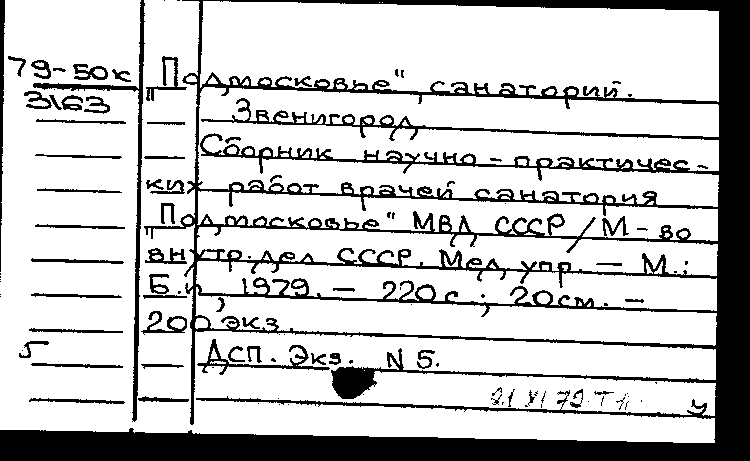 79-50к „Подмосковье“, санаторий.
3163 Звенигород
Сборник научно-практичес-
ких работ врачей санатория
„Подмосковье“ МВД СССР / М-во
внутр. дел СССР. Мед. упр. — М.:
Б.и, 1979. — 220 с.; 20 см. —
200 экз.
5 ДСП. Экз. N 5.
21 XI 79 у